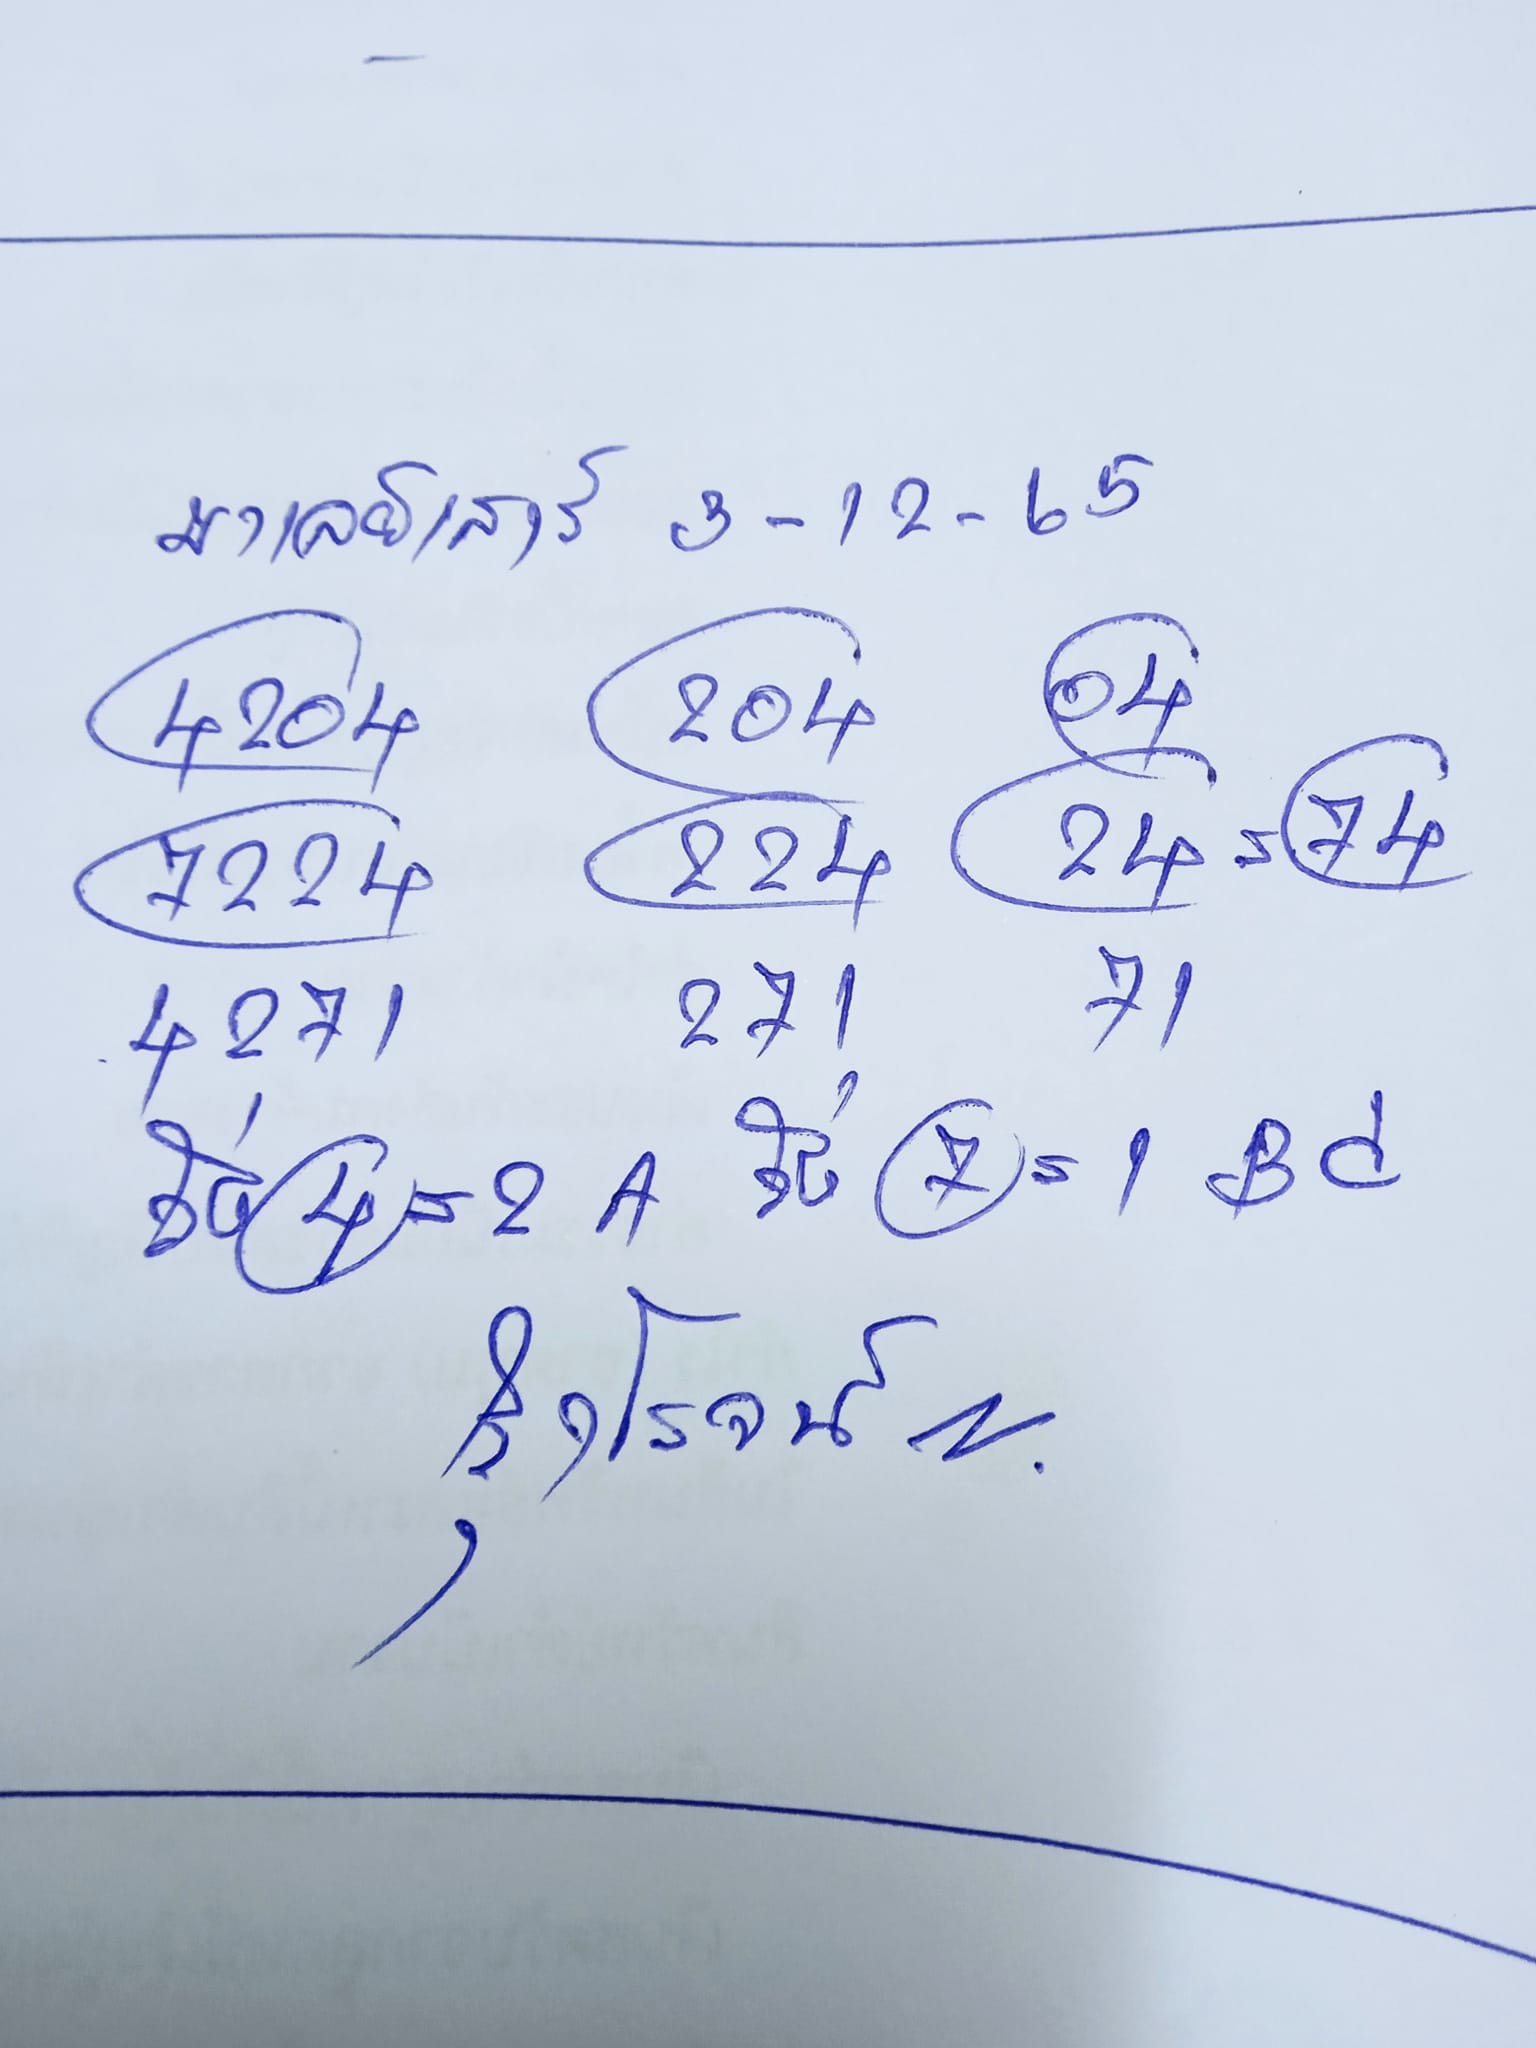 มาเลย์เสาร์ 3-12-65
4204 204 04
7224 224 24 = 74
4271 271 71
4 = 2 A 7 = 1 B C
N.